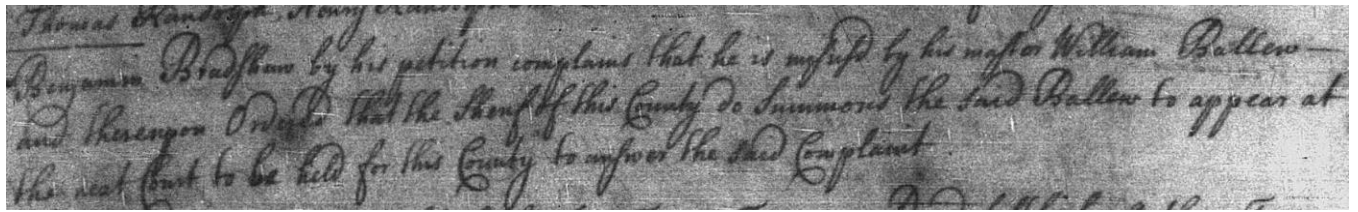 Thomas Randolph, Henry Randolph
Benjamin Bradshaw by his petition complains that he is mysusd by his master William Ballew —
and thereupon Ordered that the Sherif of this County do Summons the said Ballew to appear at
the next Court to be held for this County to answer the said Complaint